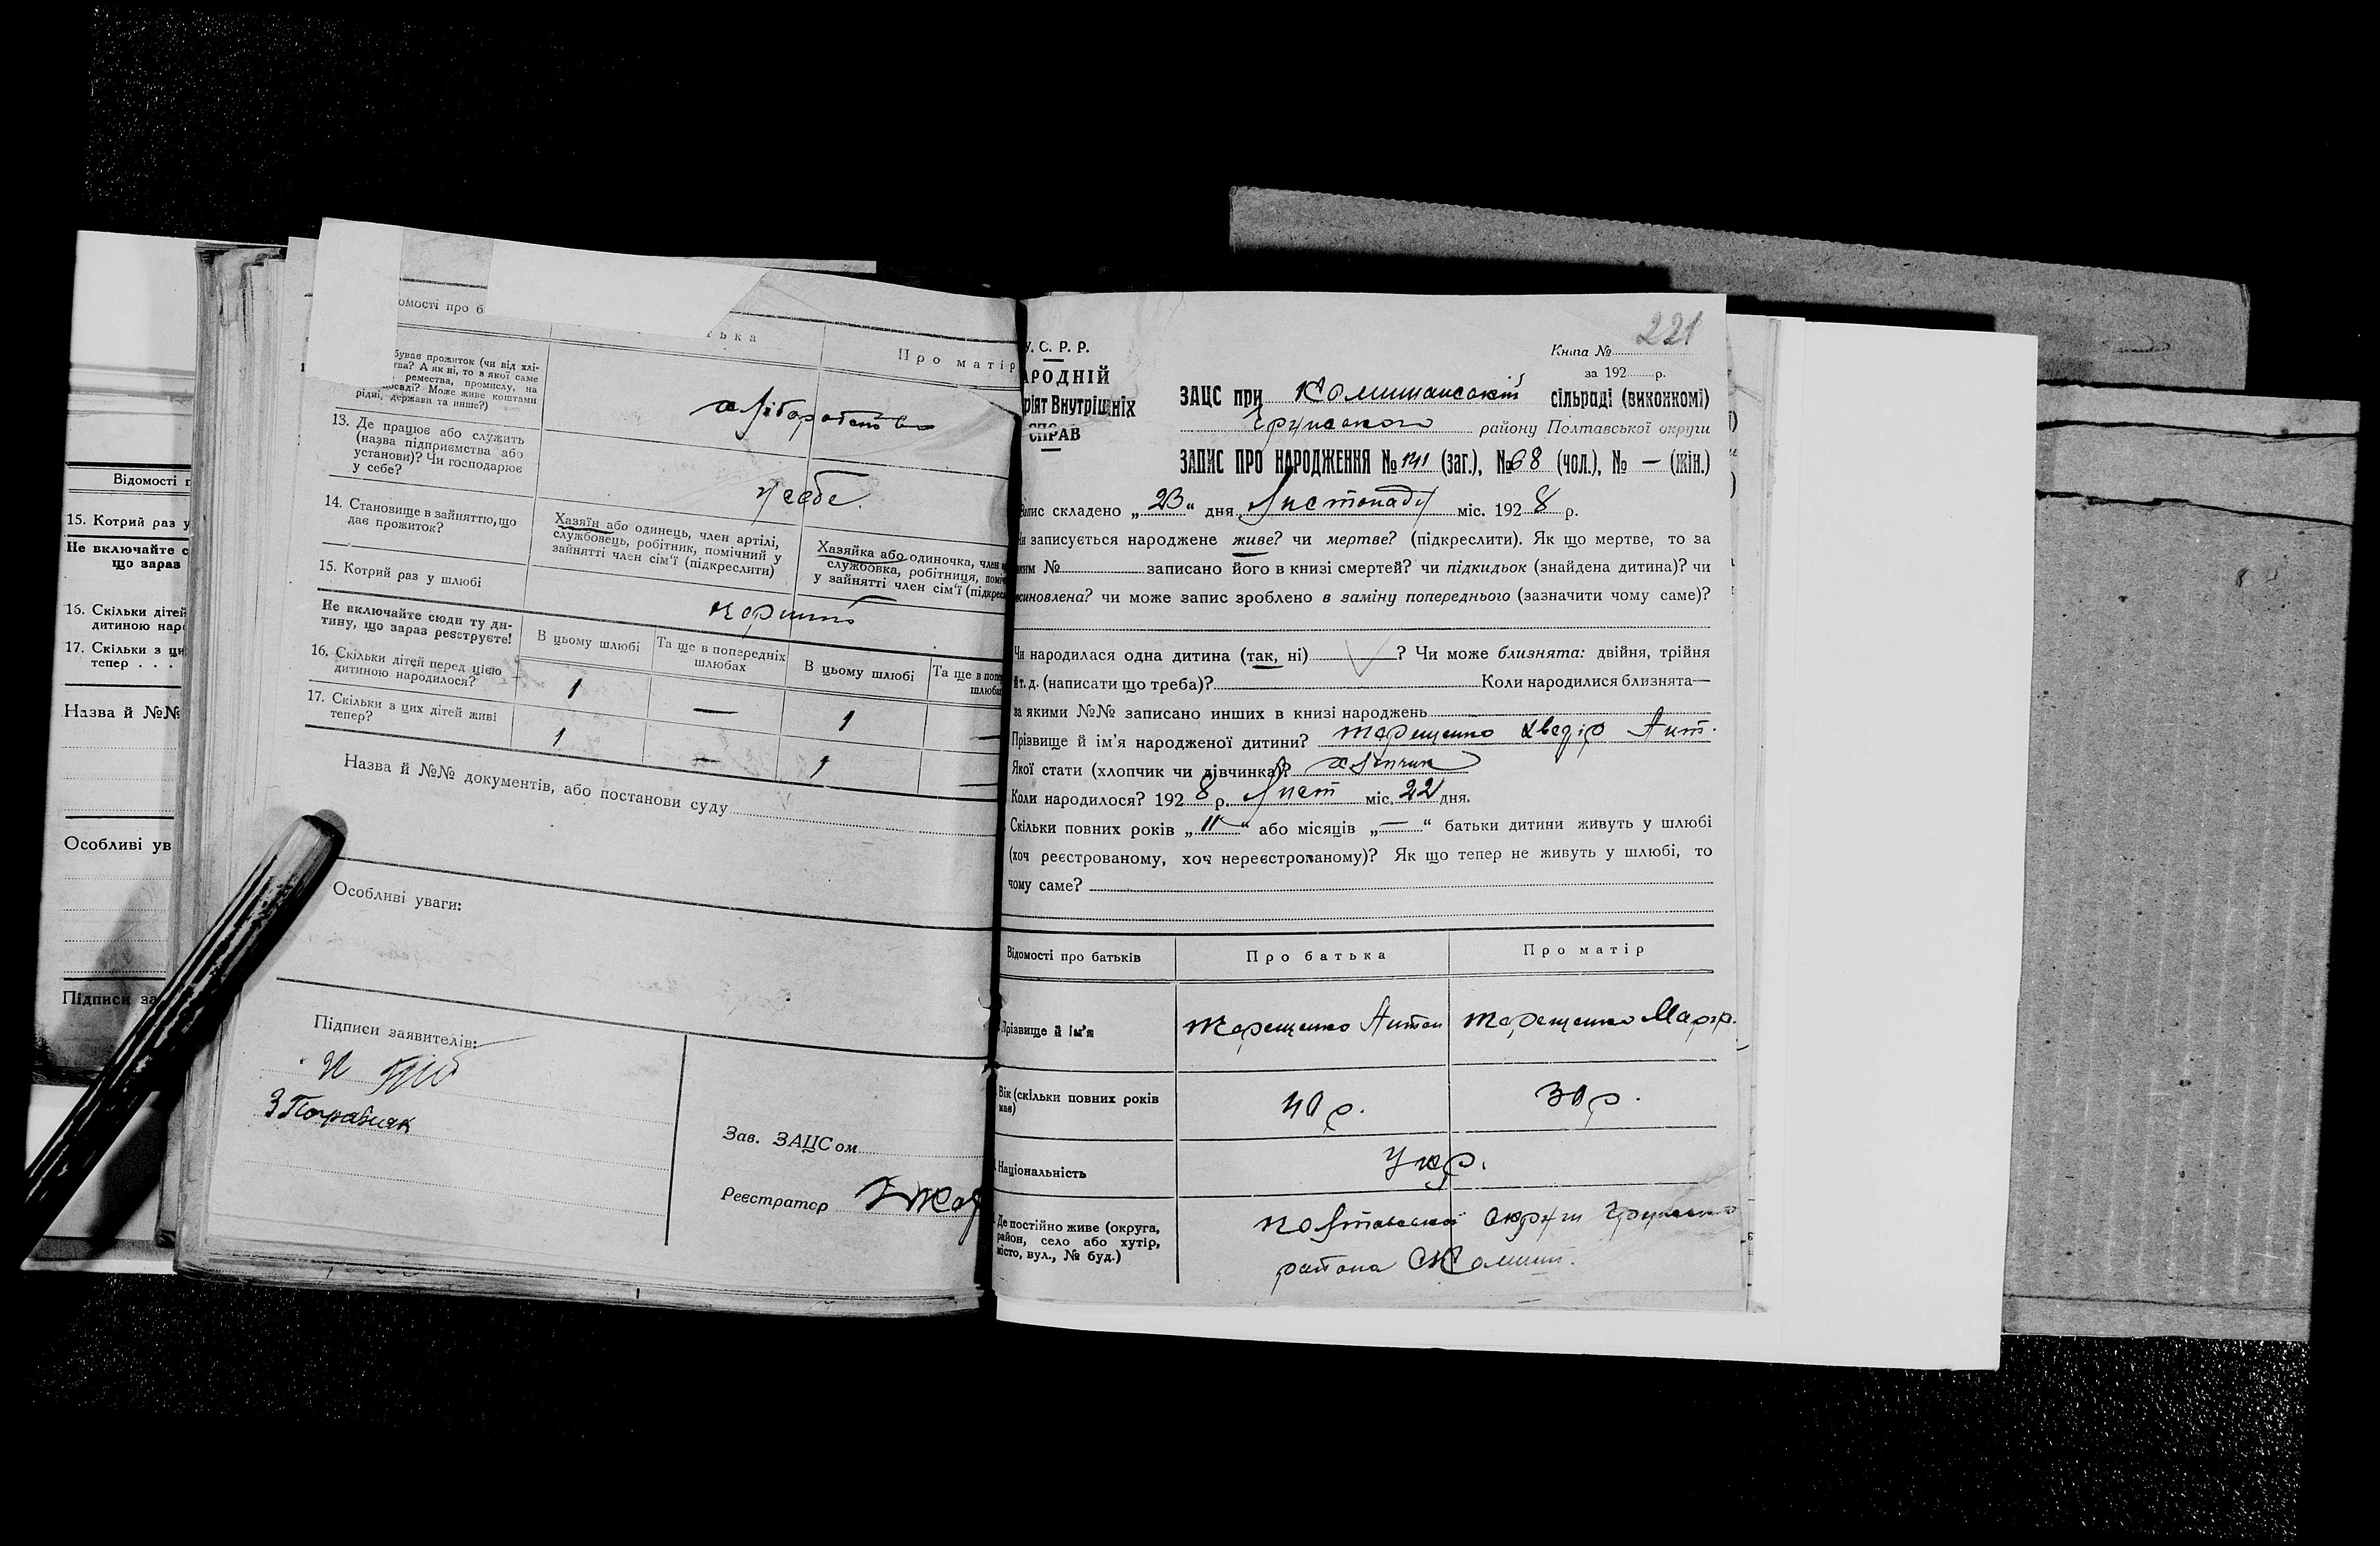 Відомості п
15. Котрий раз у
Не включайте с
що зараз
16. Скільки дітей
дитиною наро
17. Скільки з ци
тепер . . .
Назва й №№
Особливі ув
Підписи за
омості про б
ька
Про матір
буває прожиток (чи від хлі-
тва? А як ні, то в якої саме
ремества, промислу, на
посаді? Може живе коштами
рідні, держави та инше?)
хліборобство
13. Де працює або служить
(назва підприємства або
установи)? Чи господарює
у себе?
у себе.
14. Становище в зайняттю, що
дає прожиток?
Хазяїн або одинець, член артілі,
службовець, робітник, помічний у
зайнятті член сім'ї (підкреслити)
Хазяйка або одиночка, член
службовка, робітниця, поміч
у зайнятті член сім'ї (підкрес
15. Котрий раз у шлюбі
перший
Не включайте сюди ту ди-
тину, що зараз реєструєте!
В цьому шлюбі
Та ще в попередніх
шлюбах
В цьому шлюбі
Та ще в попе
шлюбах
16. Скільки дітей перед цією
дитиною народилося?
1 — 1 —
17. Скільки з цих дітей живі
тепер?
1 — 1 —
Назва й №№ документів, або постанови суду
Особливі уваги:
Підписи заявителів:
Зав. ЗАЦСом
Реєстратор
221
У. С. Р. Р.
АРОДНІЙ
ріят Внутрішніх
СПРАВ
Книга №
за 192 р.
ЗАЦС при Комишанській сільраді (виконкомі)
Грунського району Полтавської округи
ЗАПИС ПРО НАРОДЖЕННЯ № 141 (заг.), № 68 (чол.), № — (жін.)
Запис складено „23“ дня Листопаду міс. 1928 р.
Чи записується народжене живе? чи мертве? (підкреслити). Як що мертве, то за
яким № записано його в книзі смертей? чи підкидьок (знайдена дитина)? чи
усиновлена? чи може запис зроблено в заміну попереднього (зазначити чому саме)?
Чи народилася одна дитина (так, ні) ? Чи може близнята: двійня, трійня
й т. д. (написати що треба)? Коли народилися близнята—
за якими №№ записано инших в книзі народжень
Прізвище й ім'я народженої дитини? Терещенко Хведір Ант.
Якої стати (хлопчик чи дівчинка)? хлопчик
Коли народилося? 1928 р. Лист міс. 22 дня.
Скільки повних років „11“ або місяців „—“ батьки дитини живуть у шлюбі
(хоч реєстрованому, хоч нереєстрованому)? Як що тепер не живуть у шлюбі, то
чому саме?
Відомості про батьків
Про батька
Про матір
Прізвище й ім'я
Терещенко Антон
Терещенко Марф.
Вік (скільки повних років
має)
40 р.
30 р.
Національність
Укр.
Де постійно живе (округа,
район, село або хутір,
місто, вул., № буд.)
Полтавської округи Грунського
района Комиш.